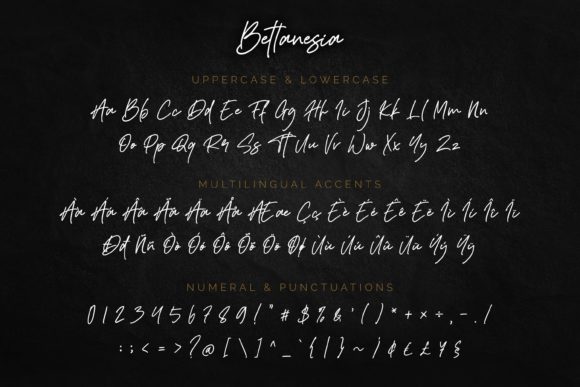 Bettanesia
UPPERCASE & LOWERCASE
Aa Bb Cc Dd Ee Ff Gg Hh Ii Jj Kk Ll Mm Nn
Oo Pp Qq Rr Ss Tt Uu Vv Ww Xx Yy Zz
MULTILINGUAL ACCENTS
Àà Áá Ââ Ãã Ää Åå ÆEae Çç Èè Éé Êê Ëë Ìì Íí Îî Ïï
Đđ Ññ Òò Óó Ôô Õõ Öö Øø Ùù Úú Ûû Üü Ýý Ÿÿ
NUMERAL & PUNCTUATIONS
0 1 2 3 4 5 6 7 8 9 ! " # $ % & ' ( ) * + × ÷ , - . /
: ; < = > ? @ [ \ ] ^ _ ` { | } ~ / ¢ € £ ¥ §